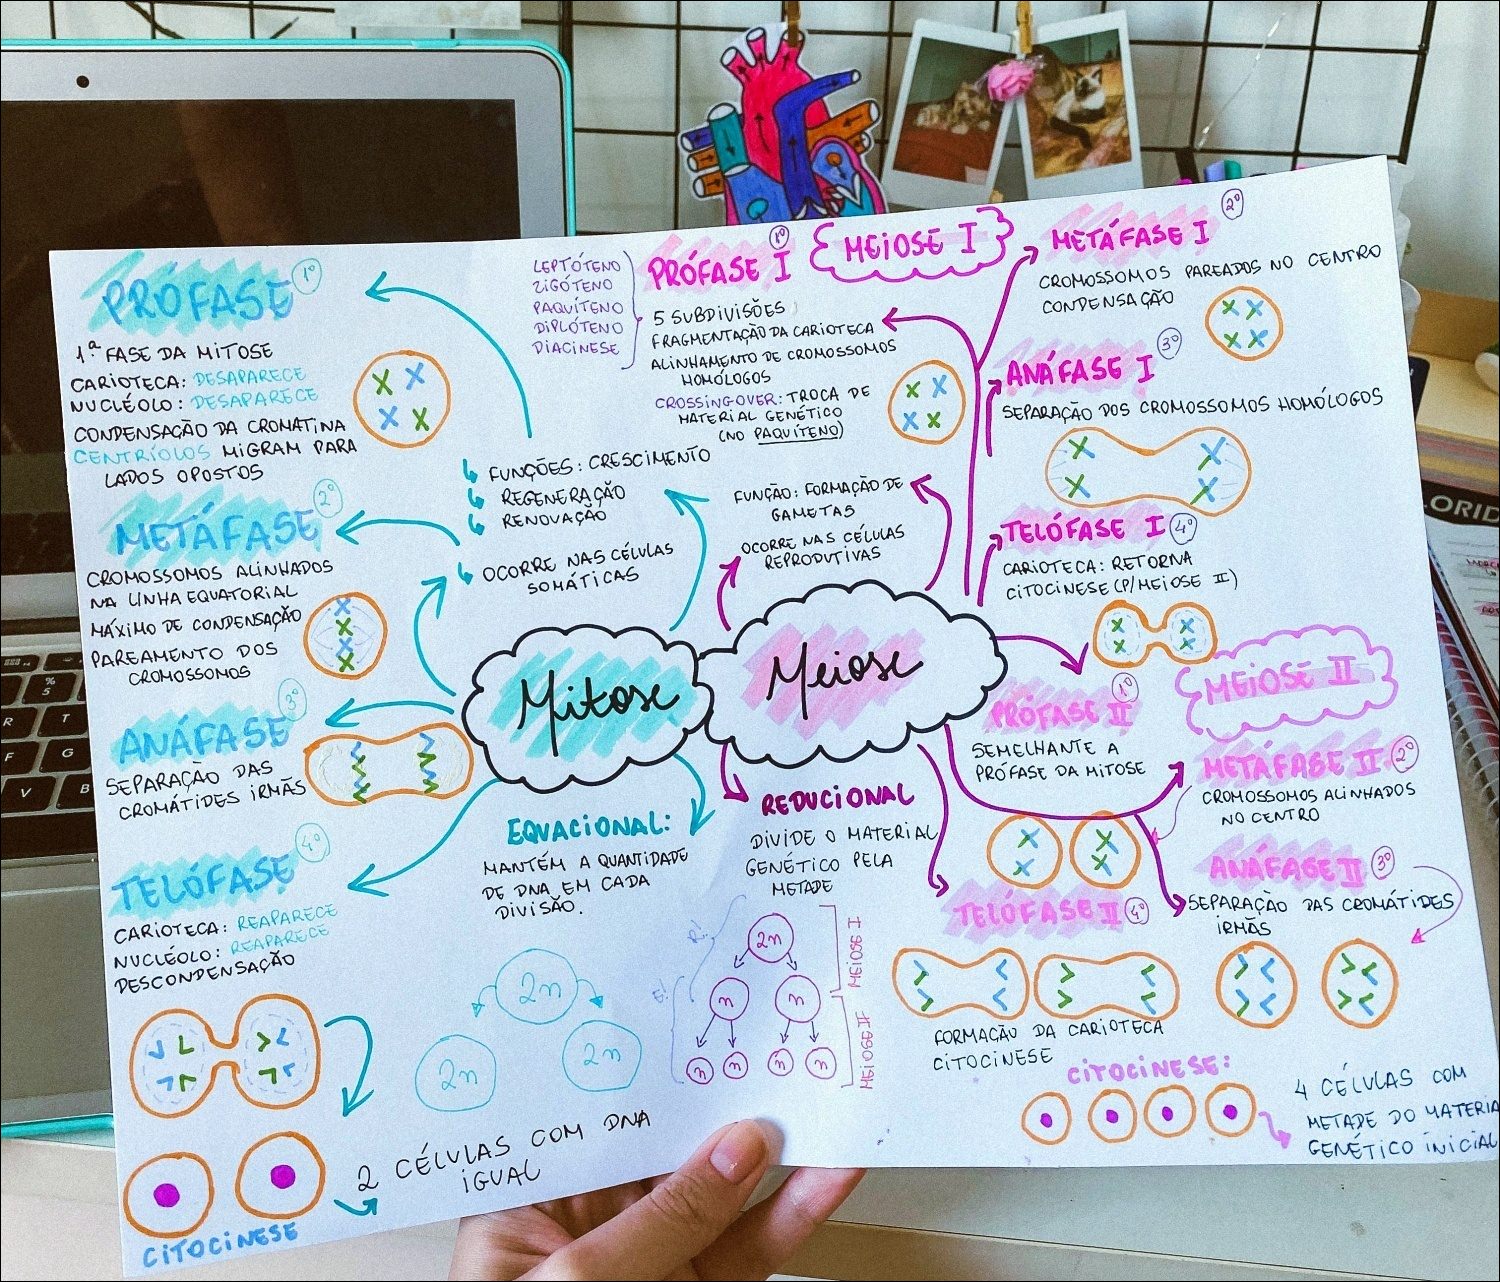 PRÓFASE 1º
1ª FASE DA MITOSE
CARIOTECA: DESAPARECE
NUCLÉOLO: DESAPARECE
CONDENSAÇÃO DA CROMATINA
CENTRÍOLOS MIGRAM PARA
LADOS OPOSTOS
METÁFASE 2º
CROMOSSOMOS ALINHADOS
NA LINHA EQUATORIAL
MÁXIMO DE CONDENSAÇÃO
PAREAMENTO DOS
CROMOSSOMOS
ANÁFASE 3º
SEPARAÇÃO DAS
CROMÁTIDES IRMÃS
TELÓFASE 4º
CARIOTECA: REAPARECE
NUCLÉOLO: REAPARECE
DESCONDENSAÇÃO
CITOCINESE
2 CÉLULAS COM DNA
IGUAL
FUNÇÕES: CRESCIMENTO
REGENERAÇÃO
RENOVAÇÃO
OCORRE NAS CÉLULAS
SOMÁTICAS
Mitose
EQUACIONAL:
MANTÉM A QUANTIDADE
DE DNA EM CADA
DIVISÃO.
2n
2n 2n
MEIOSE I
LEPTÓTENO
ZIGÓTENO
PAQUÍTENO
DIPLÓTENO
DIACINESE
PRÓFASE I 1º
5 SUBDIVISÕES
FRAGMENTAÇÃO DA CARIOTECA
ALINHAMENTO DE CROMOSSOMOS
HOMÓLOGOS
CROSSINGOVER: TROCA DE
MATERIAL GENÉTICO
(NO PAQUÍTENO)
FUNÇÃO: FORMAÇÃO DE
GAMETAS
OCORRE NAS CÉLULAS
REPRODUTIVAS
Meiose
REDUCIONAL
DIVIDE O MATERIAL
GENÉTICO PELA
METADE
R!
E!
2n
n n
n n n n
MEIOSE I
MEIOSE II
METÁFASE I 2º
CROMOSSOMOS PAREADOS NO CENTRO
CONDENSAÇÃO
ANÁFASE I 3º
SEPARAÇÃO DOS CROMOSSOMOS HOMÓLOGOS
TELÓFASE I 4º
CARIOTECA: RETORNA
CITOCINESE (P/MEIOSE II)
MEIOSE II
PRÓFASE II 1º
SEMELHANTE A
PRÓFASE DA MITOSE
METÁFASE II 2º
CROMOSSOMOS ALINHADOS
NO CENTRO
ANÁFASE II 3º
SEPARAÇÃO DAS CROMÁTIDES
IRMÃS
TELÓFASE II 4º
FORMAÇÃO DA CARIOTECA
CITOCINESE
CITOCINESE:
4 CÉLULAS COM
METADE DO MATERIA
GENÉTICO INICIAL
LORID
%
5
R
T
F
G
V
B